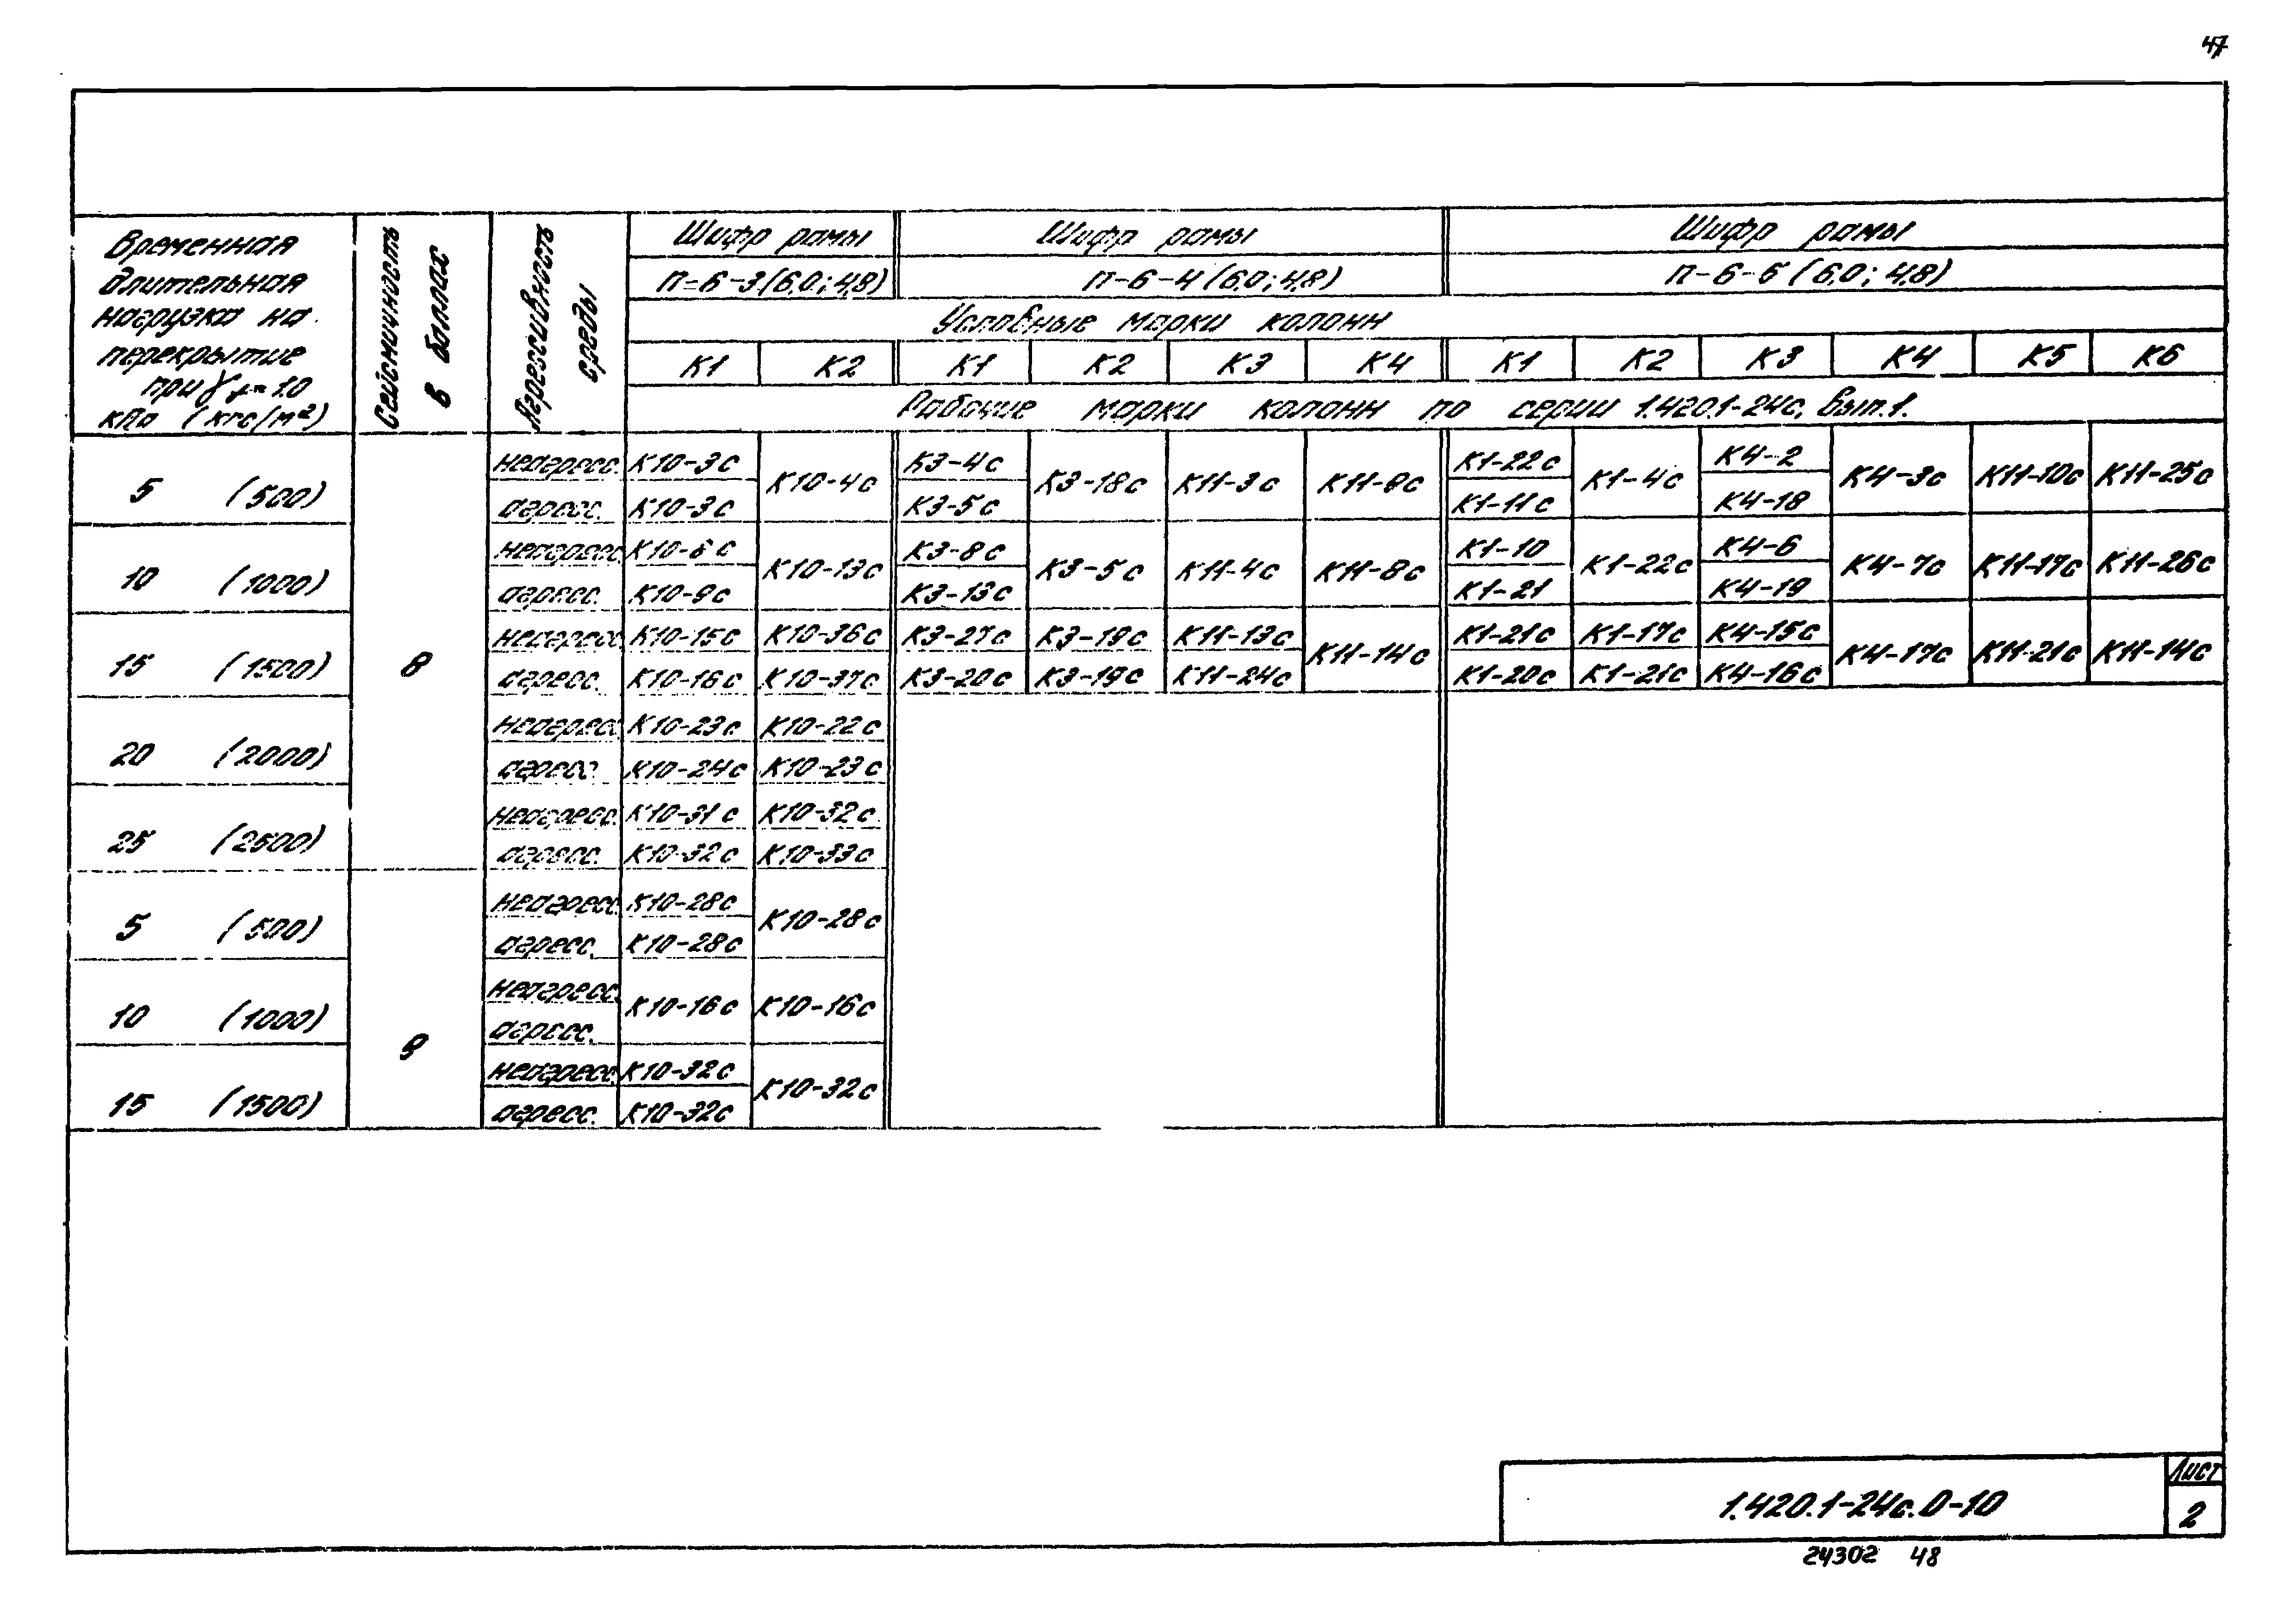 47
Временная длительная нагрузка на перекрытие при γf=1.0 кПа (кгс/м²)
Сейсмичность в баллах
Агрессивность среды
Шифр рамы Шифр рамы Шифр рамы
П-6-3(6,0;4,8) П-6-4(6,0;4,8) П-6-5(6,0;4,8)
Условные марки колонн
К1 К2 К1 К2 К3 К4 К1 К2 К3 К4 К5 К6
Рабочие марки колонн по серии 1.420.1-24с, вып.1.
5 (500)
неагресс. К10-3с К10-4с К3-4с К3-18с К11-3с К11-9с К1-22с К1-4с К4-2 К4-3с К11-10с К11-25с
агресс. К10-3с К3-5с К1-11с К4-18
10 (1000)
неагресс. К10-6с К10-13с К3-8с К3-5с К11-4с К11-8с К1-10 К1-22с К4-6 К4-7с К11-17с К11-26с
агресс. К10-9с К3-13с К1-21 К4-19
15 (1500) 8
неагресс. К10-15с К10-36с К3-27с К3-19с К11-13с К11-14с К1-21с К1-17с К4-15с К4-17с К11-21с К11-14с
агресс. К10-16с К10-37с К3-20с К3-19с К11-24с К1-20с К1-21с К4-16с
20 (2000)
неагресс. К10-23с К10-22с
агресс. К10-24с К10-23с
25 (2500)
неагресс. К10-31с К10-32с
агресс. К10-32с К10-33с
5 (500)
неагресс. К10-28с К10-28с
агресс. К10-28с
10 (1000) 9
неагресс. К10-16с К10-16с
агресс.
15 (1500)
неагресс. К10-32с К10-32с
агресс. К10-32с
1.420.1-24с.0-10
Лист
2
24302 48